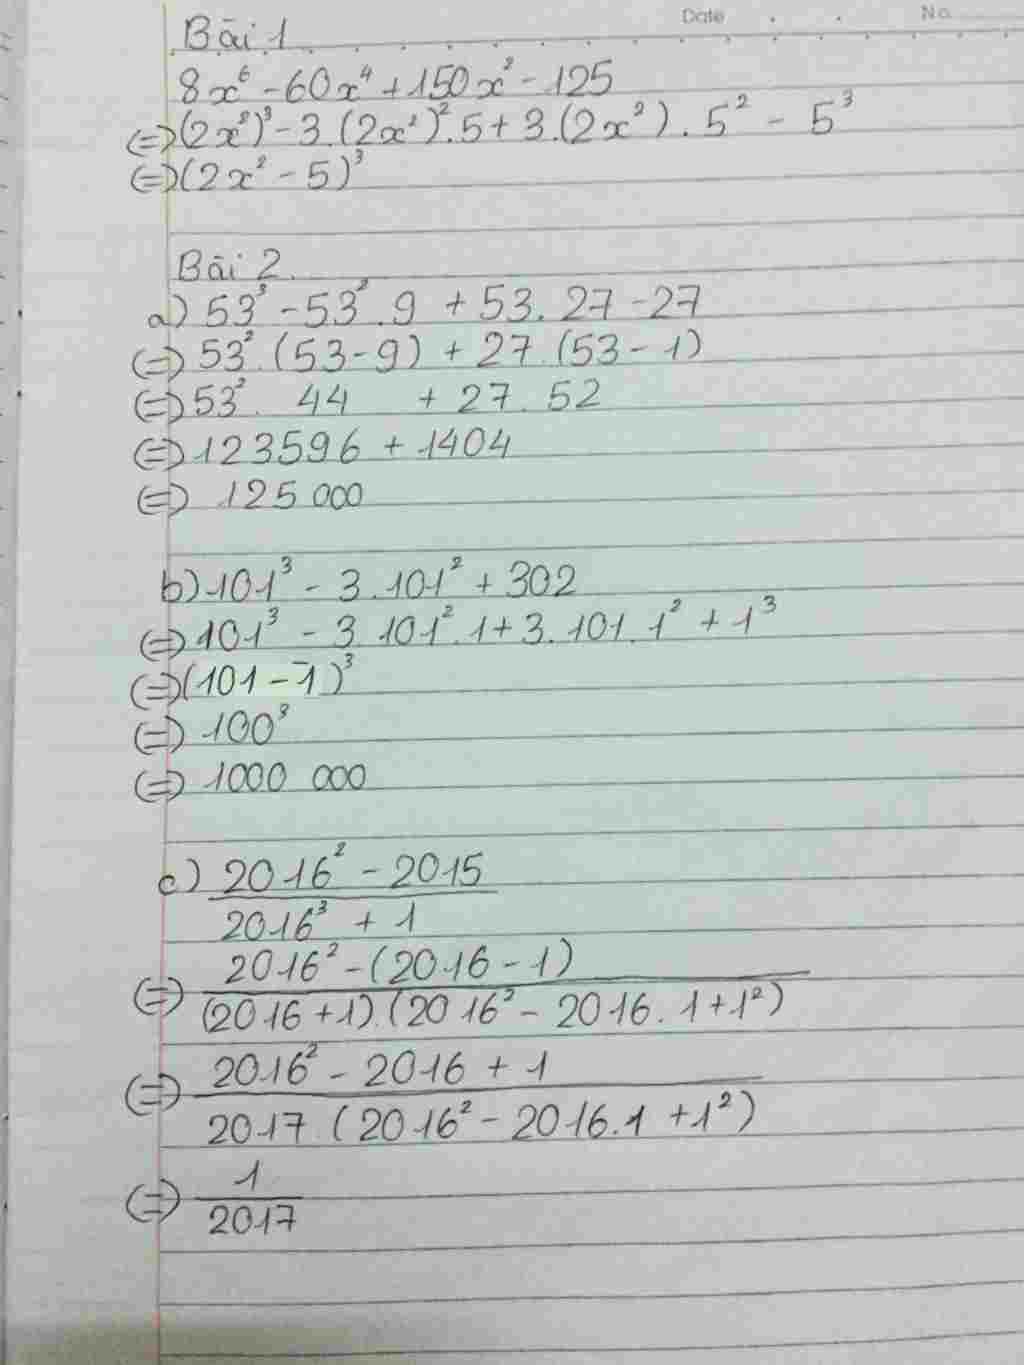 Date No.
Bài 1
8x⁶ - 60x⁴ + 150x² - 125
(=) (2x²)³ - 3.(2x²)².5 + 3.(2x²).5² - 5³
(=) (2x² - 5)³
Bài 2.
a) 53³ - 53².9 + 53.27 - 27
(=) 53².(53 - 9) + 27.(53 - 1)
(=) 53². 44 + 27.52
(=) 123596 + 1404
(=) 125 000
b) 101³ - 3.101² + 302
(=) 101³ - 3.101².1 + 3.101.1² + 1³
(=) (101 - 1)³
(=) 100³
(=) 1000 000
c) 2016² - 2015
2016³ + 1
2016² - (2016 - 1)
(=) (2016 + 1).(2016² - 2016.1 + 1²)
2016² - 2016 + 1
(=) 2017.(2016² - 2016.1 + 1²)
1
(=) 2017